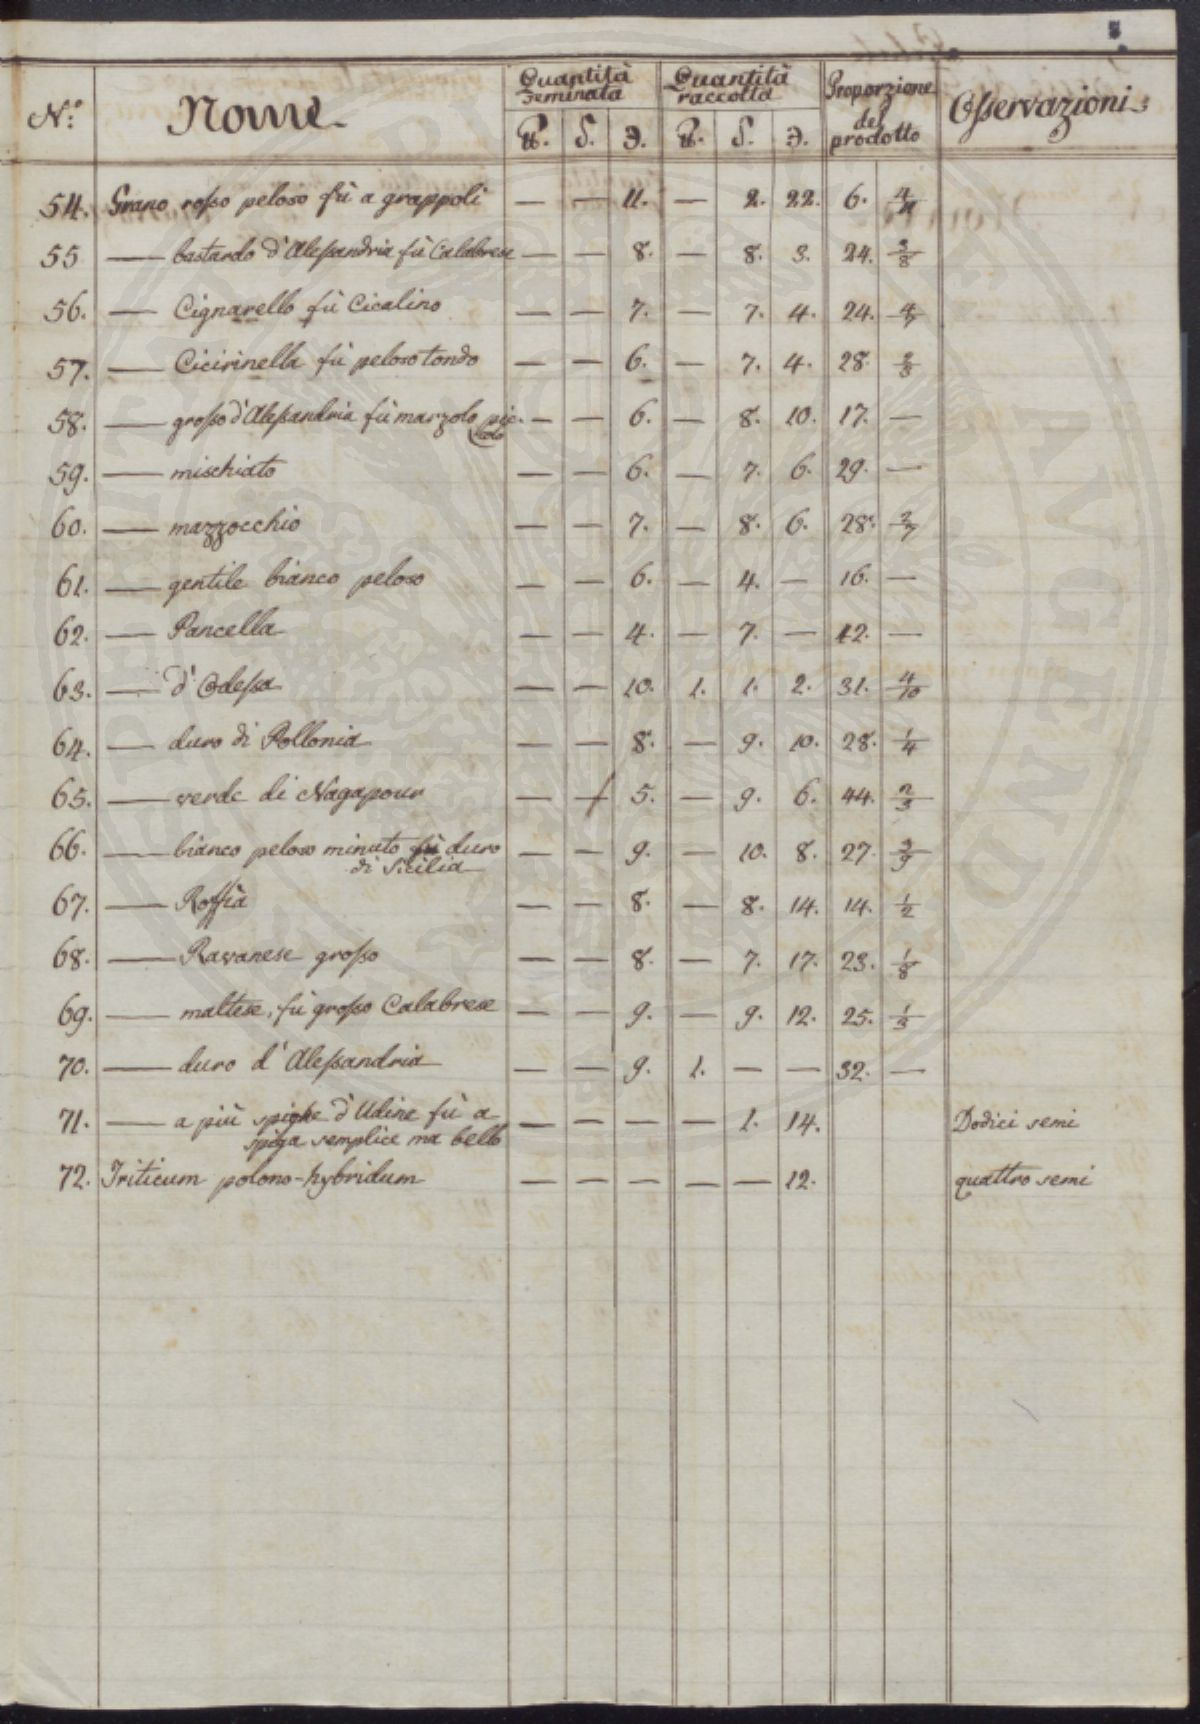 N.º Nome Quantità seminata Quantità raccolta Proporzione del prodotto Osservazioni
℔. S. Э. ℔. S. Э.
54. Grano rosso peloso fù a grappoli — — 11. — 2. 22. 6. 4/11
55 — bastardo d'Alessandria fù Calabrese — — 8. — 8. 3. 24. 3/8
56. — Cignarello fù Cicalino — — 7. — 7. 4. 24. 4/7
57. — Cicirinella fù peloso tondo — — 6. — 7. 4. 28. 2/3
58. — grosso d'Alessandria fù marzolo pic- — — 6. — 8. 10. 17. —
colo
59. — mischiato — — 6. — 7. 6. 29. —
60. — mazzocchio — — 7. — 8. 6. 28. 2/7
61. — gentile bianco peloso — — 6. — 4. — 16. —
62. — Pancella — — 4. — 7. — 42. —
63. — d'Odessa — — 10. 1. 1. 2. 31. 4/10
64. — duro di Pollonia — — 8. — 9. 10. 28. 1/4
65. — verde di Nagapour — — 5. — 9. 6. 44. 2/3
66. — bianco peloso minuto fù duro — — 9. — 10. 8. 27. 3/9
di Sicilia
67. — Roffia — — 8. — 8. 14. 14. 1/2
68. — Ravanese grosso — — 8. — 7. 17. 23. 1/8
69. — maltese, fù grosso Calabrese — — 9. — 9. 12. 25. 1/3
70. — duro d'Alessandria — — 9. 1. — — 32. —
71. — a più spighe d'Udine fù a — — — — 1. 14. Dodici semi
spiga semplice ma bello
72. Triticum polono-hybridum — — — — — 12. quattro semi